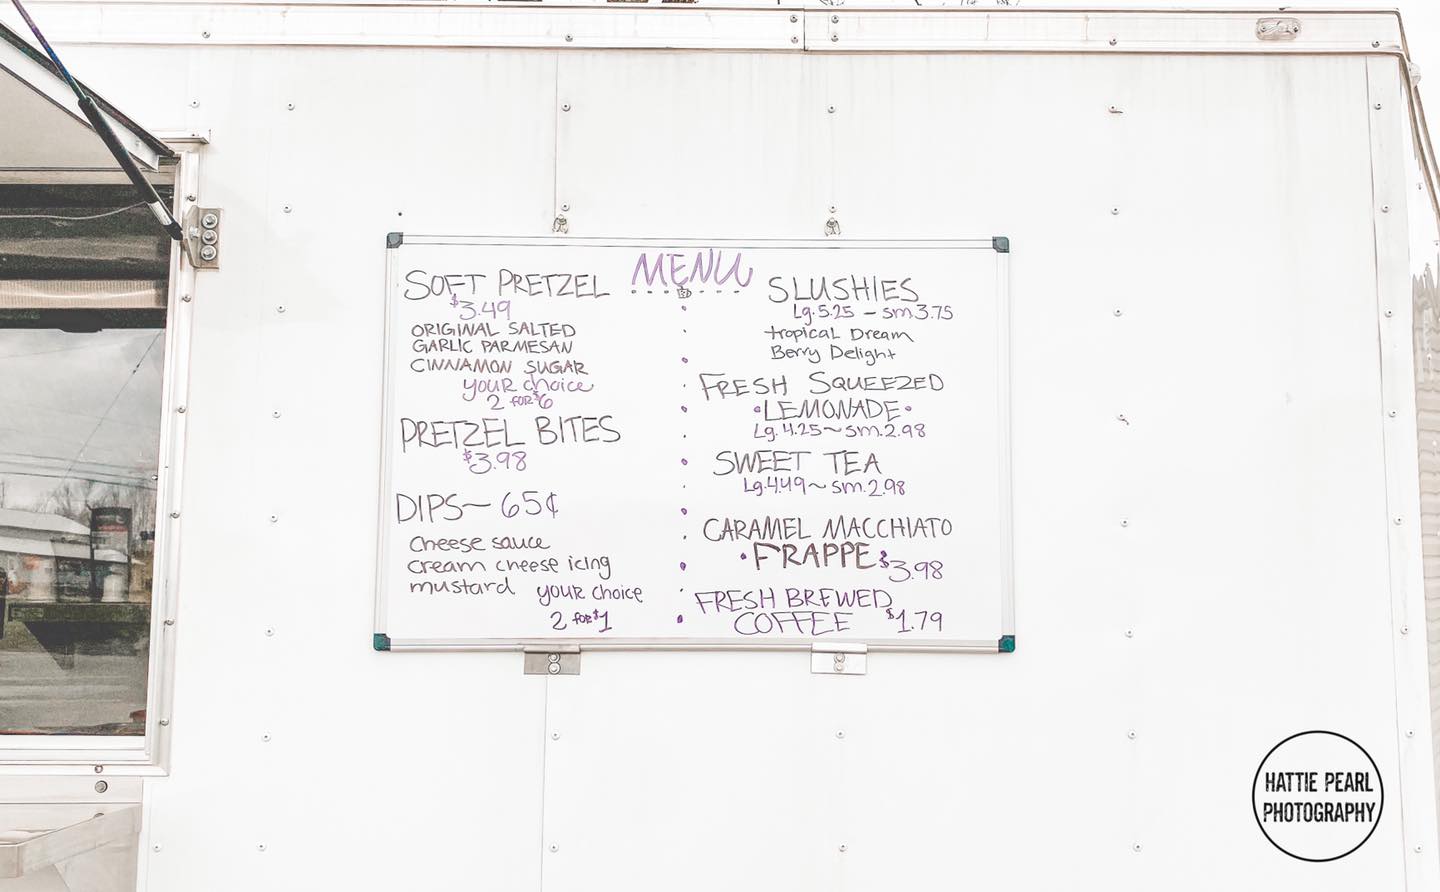 MENU
SOFT PRETZEL
$3.49
ORIGINAL SALTED
GARLIC PARMESAN
CINNAMON SUGAR
your choice
2 for $6
PRETZEL BITES
$3.98
DIPS~ 65¢
cheese sauce
cream cheese icing
mustard your choice
2 for $1
SLUSHIES
Lg. 5.25 - sm. 3.75
tropical Dream
Berry Delight
FRESH SQUEEZED
•LEMONADE•
Lg. 4.25~sm. 2.98
SWEET TEA
Lg. 4.49~ sm. 2.98
CARAMEL MACCHIATO
•FRAPPE $3.98
FRESH BREWED
COFFEE $1.79
HATTIE PEARL
PHOTOGRAPHY